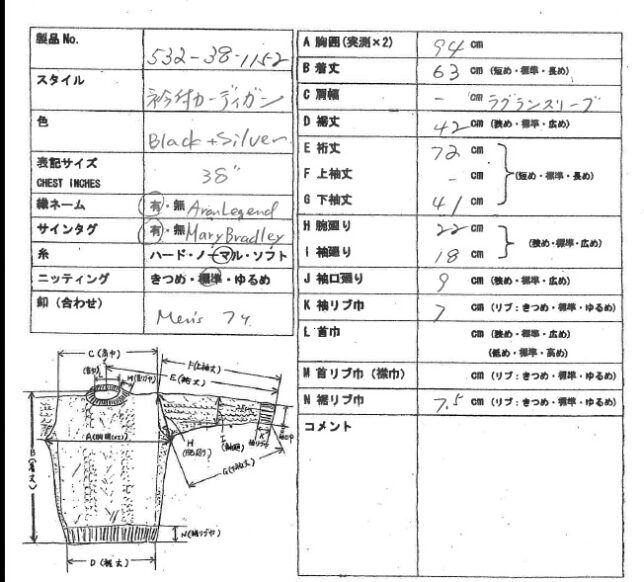 製品 No.
532-38-1152
スタイル
衿付カーディガン
色
Black + Silver
表記サイズ
CHEST INCHES
38"
織ネーム
有・無 AranLegend
サインタグ
有・無 Mary Bradley
糸
ハード・ノーマル・ソフト
ニッティング
きつめ・標準・ゆるめ
釦（合わせ）
Men's 7ヶ
A 胸囲(実測×2) 94 cm
B 着丈 63 cm（短め・標準・長め）
C 肩幅 - cm ラグランスリーブ
D 裾丈 42 cm（狭め・標準・広め）
E 裄丈 72 cm
F 上袖丈 - cm（短め・標準・長め）
G 下袖丈 41 cm
H 腕廻り 22 cm
（狭め・標準・広め）
I 袖廻り 18 cm
J 袖口廻り 9 cm（狭め・標準・広め）
K 袖リブ巾 7 cm（リブ：きつめ・標準・ゆるめ）
L 首巾 cm（狭め・標準・広め）
（低め・標準・高め）
M 首リブ巾（襟巾） cm（リブ：きつめ・標準・ゆるめ）
N 裾リブ巾 7.5 cm（リブ：きつめ・標準・ゆるめ）
コメント
C（肩巾）
F（上袖丈）
E（裄丈）
B（着丈）
H
I
K
G（下袖丈）
N（裾リブ巾）
D（裾丈）